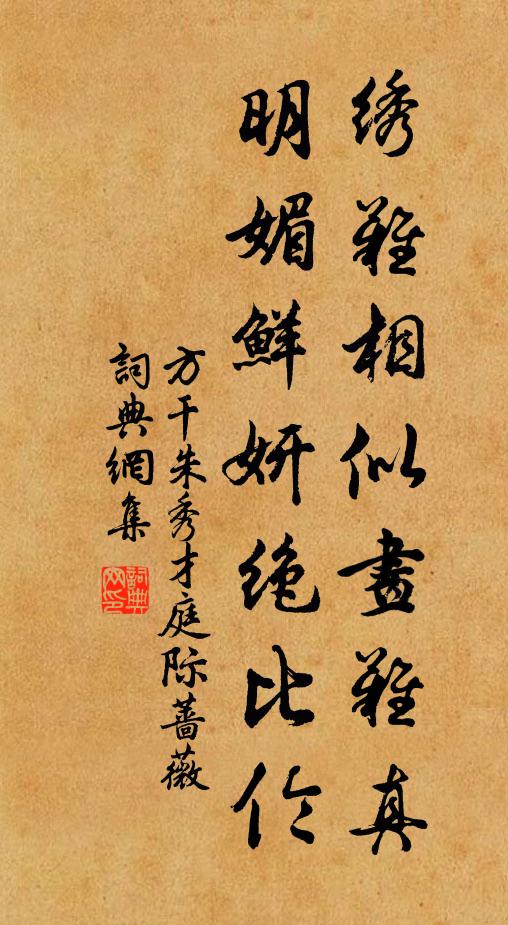 绣難相似畫難真
明媚鮮妍绝比伦
方干朱秀才庭际蔷薇
詞典網集
詞典网印